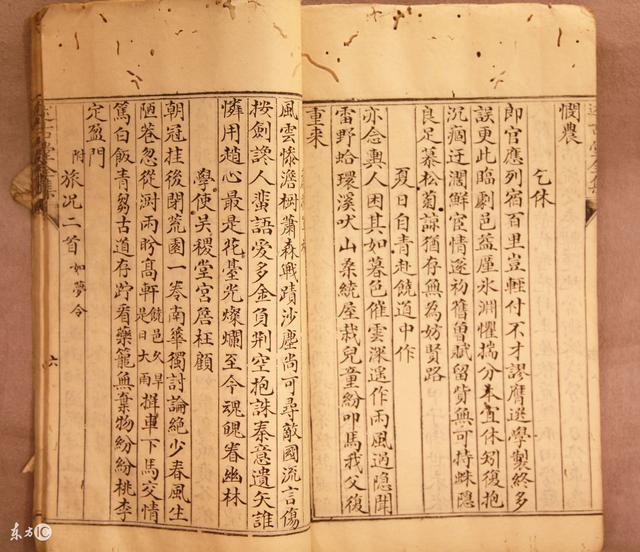 憫農
乞休
即官應列宿百里豈輕付不才謬膺選學製終多
誤更此臨劇邑益厪氷淵懼揣分本宜休矧復抱
沉痼迂濶鮮宦情遂初舊曾賦留貲無可持蛛隱
良足慕松菊諒猶存無為妨賢路
夏日自青赴饒道中作
亦念輿人困其如暮色催雲深遙作雨風過隱聞
雷野蛤環溪吠山桑繞屋栽兒童紛叩馬我父復
重来
風雲慘澹樹蕭森戰蹟沙塵尚可尋敵國流言傷
按劍讒人蜚語愛多金負荆空抱誅秦意遺矢誰
憐用趙心最是花臺光燦爛至今魂魄眷幽林
學使吴稷堂宫詹枉顧
朝冠挂後閉荒園一卷南華獨討論絕少春風生
陋巷忽從澍雨盼高軒饒邑久旱是日大雨揖車下馬交情
篤白飯青芻古道存跨看藥籠無棄物紛紛桃李
定盈門
附旅况二首如夢令
六
东方IC